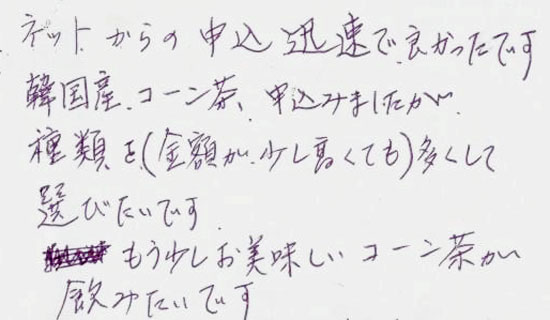 ネットからの申込 迅速で良かったです
韓国産、コーン茶、申込みましたが、
種類を(金額が少し高くても)多くして
選びたいです
もう少しお美味しいコーン茶が
飲みたいです